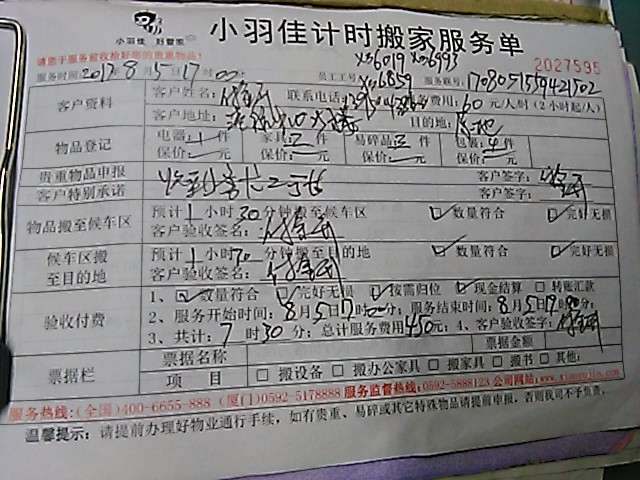 小羽佳 好管家
小羽佳计时搬家服务单
x06019 x06993
请您于服务前收检好您的贵重物品! 2027595
服务时间:2017年8月5日17时00分 员工工号x06859 服务联号:170805155942
客户资料 客户姓名: 联系电话: 服务费用:60元/人/时(2小时起/人)
客户地址: 目的地:
物品登记 电器:1件 家具:2件 易碎品:2件 包裹:4件
保价:元 保价:元 保价:元 保价:元
贵重物品申报 客户签字:
客户特别承诺 客户签字:
物品搬至候车区 预计1小时30分钟搬至候车区 数量符合 完好无损
客户验收签名:
候车区搬至目的地 预计1小时30分钟搬至目的地 数量符合 完好无损
客户验收签名:
验收付费 1、数量符合 完好无损 按需归位 现金结算 转账汇款
2、服务开始时间:8月5日17时00分;服务结束时间:8月5日19时分;
3、共计:7时30分;总计服务费用450元;4、客户验收签字:
票据栏 票据名称 票据金额
项目 搬设备 搬办公家具 搬家具 搬书 其他:
服务热线:(全国)400-6655-888 (厦门)0592-5178888 服务监督热线:0592-5888123 公司网站:www.xiaoyujia.com
温馨提示:请提前办理好物业通行手续,如有贵重、易碎或其它特殊物品请提前申报,否则我司不予负责。